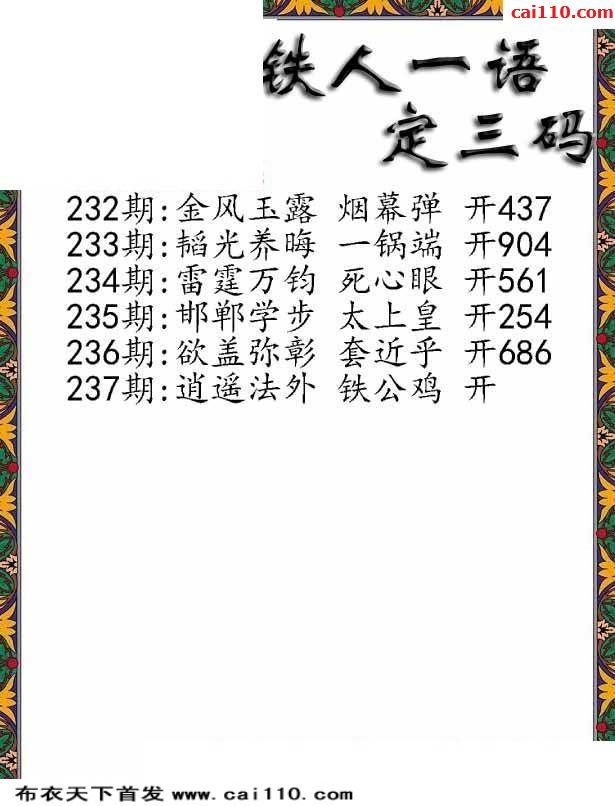 cai110.com
铁人一语
定三码
232期:金风玉露 烟幕弹 开437
233期:韬光养晦 一锅端 开904
234期:雷霆万钧 死心眼 开561
235期:邯郸学步 太上皇 开254
236期:欲盖弥彰 套近乎 开686
237期:逍遥法外 铁公鸡 开
布衣天下首发 www.cai110.com